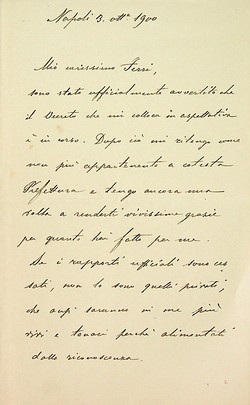 Napoli 3. ott.e 1900
Mio carissimo Ferri,
sono stato ufficialmente avvertito che
il Decreto che mi colloca in aspettativa
è in corso. Dopo ciò mi ritengo come
non più appartenente a cotesta
Prefettura e tengo ancora una
volta a renderti vivissime grazie
per quanto hai fatto per me.
Se i rapporti ufficiali sono ces
sati, non lo sono quelli privati;
che anzi saranno in me più
vivi e tenaci perchè alimentati
dalla riconoscenza.